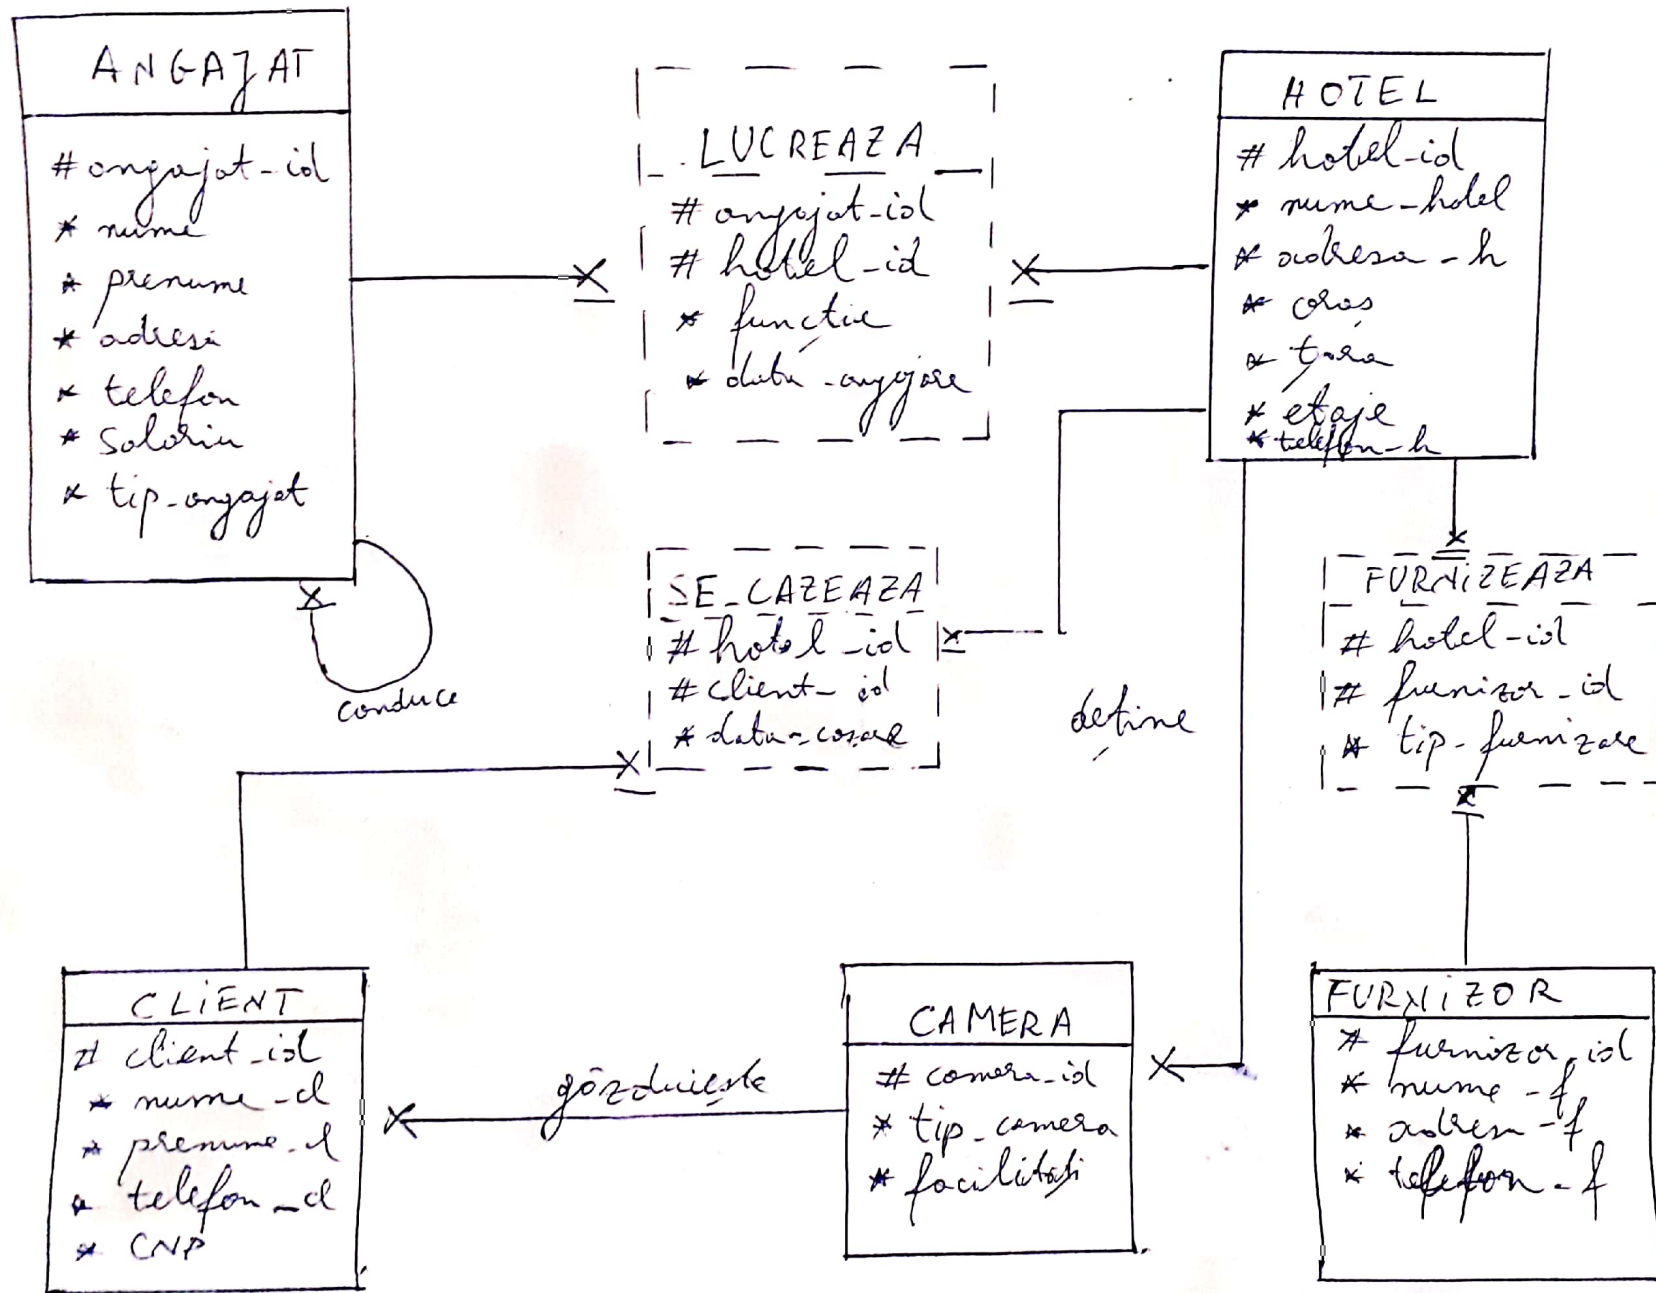 ANGAJAT
# angajat-id
* nume
* prenume
* adresa
* telefon
* salariu
* tip-angajat
conduce
LUCREAZA
# angajat-id
# hotel-id
* funcție
* data-angajare
HOTEL
# hotel-id
* nume-hotel
* adresa-h
* oras
* țara
* etaje
* telefon-h
SE_CAZEAZA
# hotel-id
# client-id
* data-cazare
deține
FURNIZEAZA
# hotel-id
# furnizor-id
* tip-furnizare
CLIENT
# client-id
* nume-cl
* prenume-cl
* telefon-cl
* CNP
găzduiește
CAMERA
# camera-id
* tip-camera
* facilitați
FURNIZOR
# furnizor-id
* nume-f
* adresa-f
* telefon-f